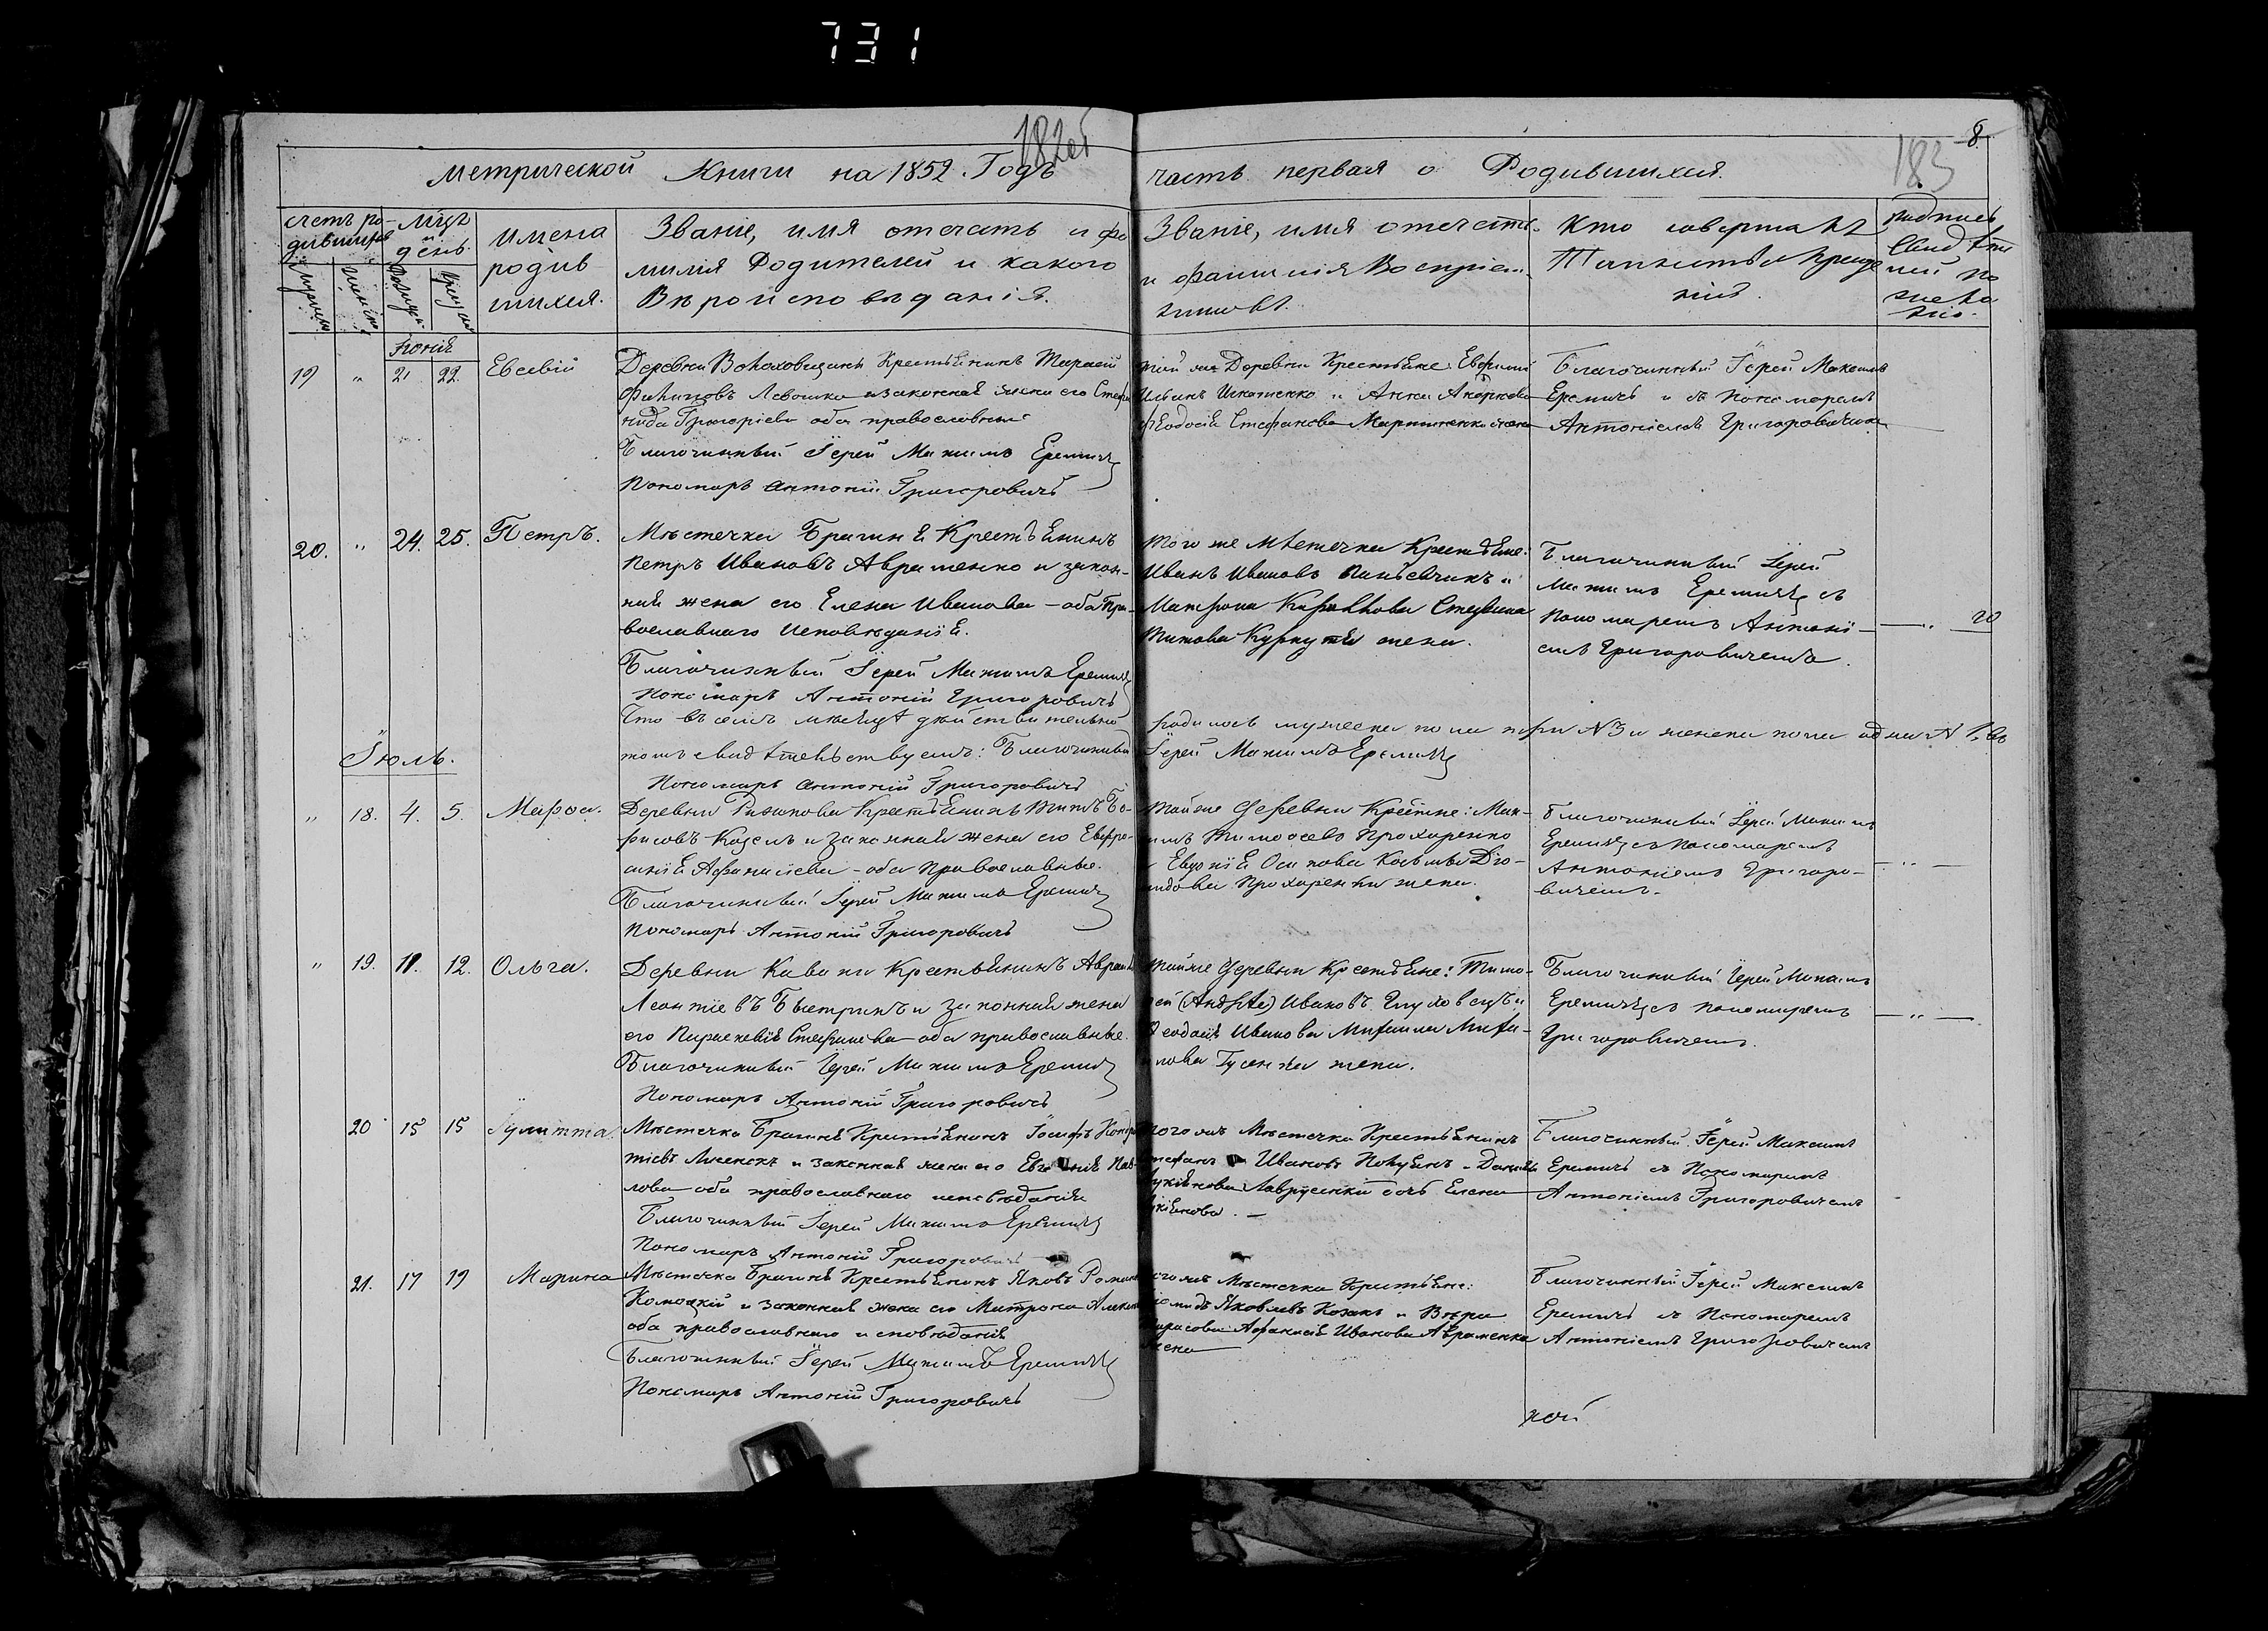 731
182об
8
183
Метрической Книги на 1852 Годъ
часть первая о Родившихся.
счетъ ро-
дившихся
Мцъ
и
день
имена
родив
шихся.
Званіе, имя отечеств и фа
милія Родителей и какого
Вѣроисповѣданія.
Званіе, имя отечеств.
и фамилія Воспріем-
никовъ.
Кто совершалъ
Таинство Креще
нія.
подпись
свидѣте
лей по
жела
нію.
Іюнія
19 " 21 22. Евсевій
Деревни Крестьянинъ
Филиповъ Левошко и законная жена его Стефа
нида Григоріева оба православные
Благочинный Іерей Максимъ Еремичъ
Пономарь Антоній Григоровичъ
той же Деревни Крестьяне: Ефимій
Ильинъ и Анна
Феодосія Стефанова жена
Благочинный Іерей Максимъ
Еремичъ и съ Пономаремъ
Антоніемъ Григоровичемъ
20. " 24. 25. Петръ.
Мѣстечка Брагиня Крестьянинъ
Петръ Ивановъ Авраменко и закон-
ная жена его Елена Иванова - оба Пра-
вославнаго Исповѣданія.
Благочинный Іерей Максимъ Еремичъ
Пономарь Антоній Григоровичъ
того же Мѣстечка Крестьяне:
Иванъ Ивановъ и
Матрона Кирилова Стефана
Титова жена.
Благочинный Іерей
Максимъ Еремичъ съ
Пономаремъ Антоні-
емъ Григоровичемъ.
20
Что въ семъ мѣсяцѣ дѣйствительно
родилось мужеска пола три №3 и женска пола одна №1, въ
томъ свидѣтельствуемъ: Благочинный
Іерей Максимъ Еремичъ
Пономарь Антоній Григоровичъ
Іюль.
" 18. 4. 5. Марфа.
Деревни Крестьянинъ Титъ Бо-
рисовъ Козелъ и законная жена его Евфро-
синія Афанасіева - оба Православные.
Благочинный Іерей Максимъ Еремичъ
Пономарь Антоній Григоровичъ
тойже Деревни Крестяне: Мак-
симъ Тимофеевъ Прохоренко
и Евдокія Осипова Косьмы Діо-
мидова Прохоренки жена.
Благочинный Іерей Максимъ
Еремичъ съ Пономаремъ
Антоніемъ Григоро-
вичемъ.
" 19. 11. 12. Ольга.
Деревни Крестьянинъ Авраамъ
Леонтіевъ и законная жена
его Параскевія Стефанова - оба православные.
Благочинный Іерей Максимъ Еремичъ
Пономарь Антоній Григоровичъ
тойже Деревни Крестьяне: Тимо-
фей (Андрѣй) Ивановъ Глуховецъ и
Феодосія Иванова Михаила Миха-
йлова Гусенка жена.
Благочинный Іерей Максимъ
Еремичъ съ Пономаремъ
Григоровичемъ.
20 15 15 Іулитта.
Мѣстечка Брагиня Крестьянинъ Іосифъ
и законная жена его Евгенія Пав-
лова оба православнаго исповѣданія
Благочинный Іерей Максимъ Еремичъ
Пономарь Антоній Григоровичъ
тогоже Мѣстечка Крестьянинъ
Стефанъ Ивановъ
дочь Елена
Благочинный Іерей Максимъ
Еремичъ съ Пономаремъ
Антоніемъ Григоровичемъ
21. 17 19 Марина
Мѣстечка Брагиня Крестьянинъ Яковъ
и законная жена его Матрона
оба православнаго исповѣданія
Благочинный Іерей Максимъ Еремичъ
Пономарь Антоній Григоровичъ
тогоже Мѣстечка Крестьяне:
Яковлевъ Козакъ и Вѣра
Афанасія Иванова Авраменка
жена
Благочинный Іерей Максимъ
Еремичъ съ Пономаремъ
Антоніемъ Григоровичемъ
кой